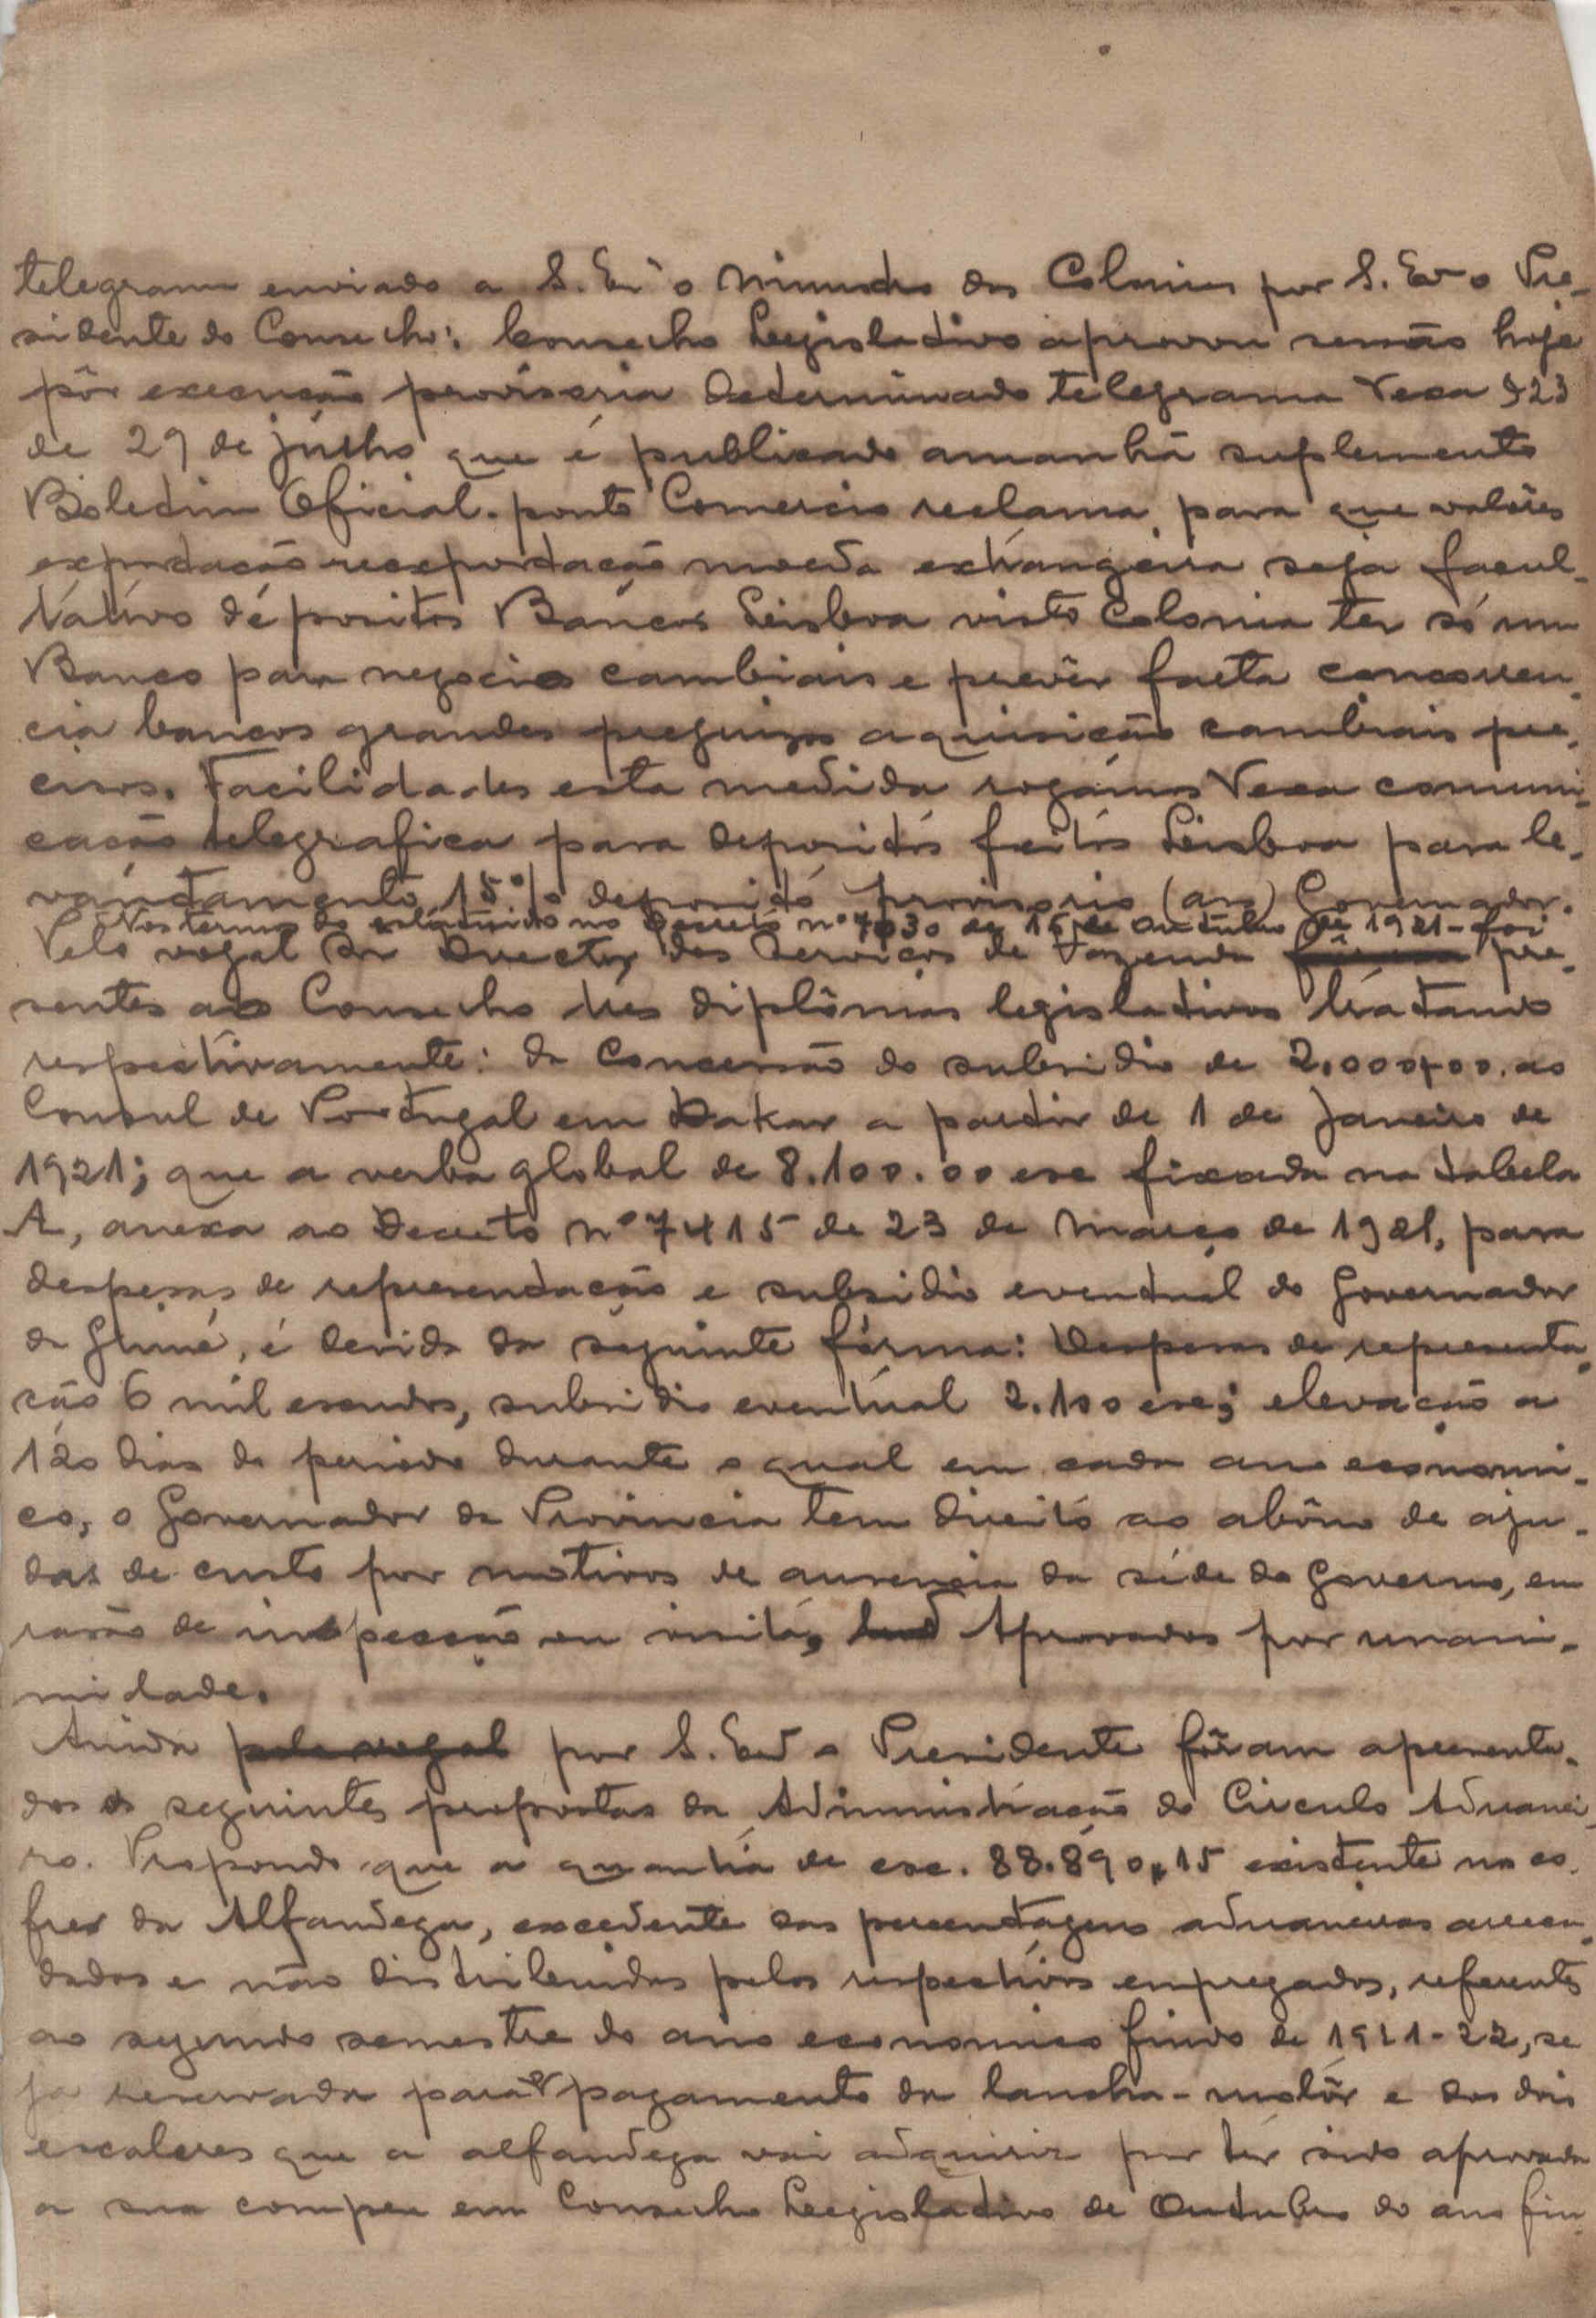 telegrama enviado a S. Exª o Ministro das Colonias por S. Exª o Pre-
sidente do Conselho: Conselho Legislativo aprovou sessão hoje
pôr execução provisoria determinado telegrama Vexa 323
de 29 de julho que é publicado amanhã suplemento
Boletim Oficial. ponto Comercio reclama para que valôres
exportação reexportação moeda extrangeira seja facul-
tativo dépositos Bancos Leisboa visto Colonia ter só um
Banco para negocios cambiais e prevêr falta concorren-
cia bancos grandes prejuizos aquisição cambiais pre-
cisos. Facilidades esta medida rogámos Vexa comuni-
cação telegrafica para depositos feitos Leisboa para le-
vantamento 15% deposito provisorio (aa) Governador.
Nos termos do estatuido no Decreto nº 7030 de 15 de Outubro de 1921 - foi
Pelo vogal Sr Director dos Serviços de Fazenda pre-
sentes ao Conselho três diplômas legislativos tratando
respectivamente: da Concessão do subsidio de 2.000$00. ao
Consul de Portugal em Dakar a partir de 1 de Janeiro de
1921; que a verba global de 8.100.00 esc fixada na tabela
A, anexa ao Decreto nº 7415 de 23 de Março de 1921, para
despesas de representação e subsidio eventual do Governador
da Guiné, é devida da seguinte fórma: Despesas de representa-
ção 6 mil escudos, subsidio eventual 2.100 esc; elevação a
120 dias do periodo durante o qual em cada ano economi-
co, o Governador da Provincia tem direito ao abôno de aju-
das de custo por motivos de ausencia da séde do Governo, em
rasão de inspecção ou visita, Aprovados por unani-
midade.
Ainda pelo vogal por S. Exª o Presidente fôram apresenta-
dos as seguintes propostas da Administração do Circulo Aduanei-
ro. Propondo que a quantia de esc. 88.890,15 existente no co-
fres da Alfandega, excedente das percentagens aduaneiras arreca-
dadas e não distribuidas pelos respectivos empregados, referente
ao segundo semestre do ano economico findo de 1921-22, se
ja reservada para o pagamento da lancha-motôr e dos dois
escaleres que a alfandega vai adquirir por têr sido aprovada
a sua compra em Conselho Legislativo de Outubro do ano fin